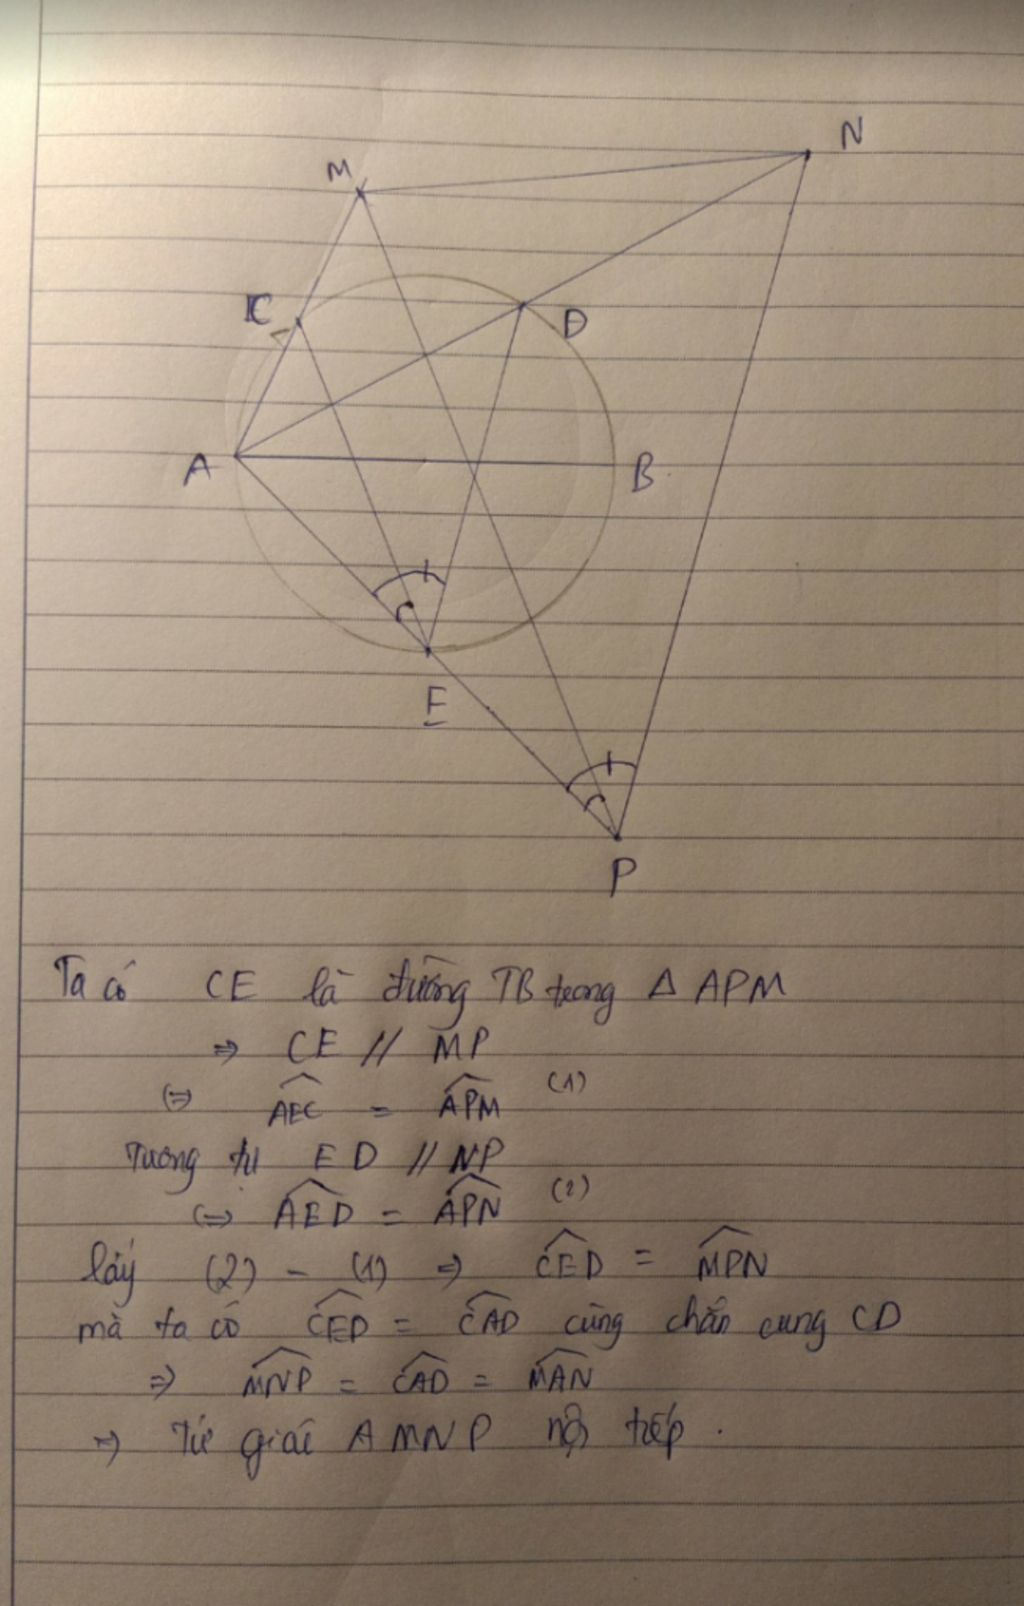 N
M
C
D
A
B
E
P
Ta có CE là đường TB trong Δ APM
⇒ CE // MP
(⇒ \widehat{AEC} = \widehat{APM} (1)
Tương tự ED // NP
(⇒ \widehat{AED} = \widehat{APN} (2)
lấy (2) - (1) ⇒ \widehat{CED} = \widehat{MPN}
mà ta có \widehat{CED} = \widehat{CAD} cùng chắn cung CD
⇒ \widehat{MNP} = \widehat{CAD} = \widehat{MAN}
⇒ Tứ giác AMNP nội tiếp.